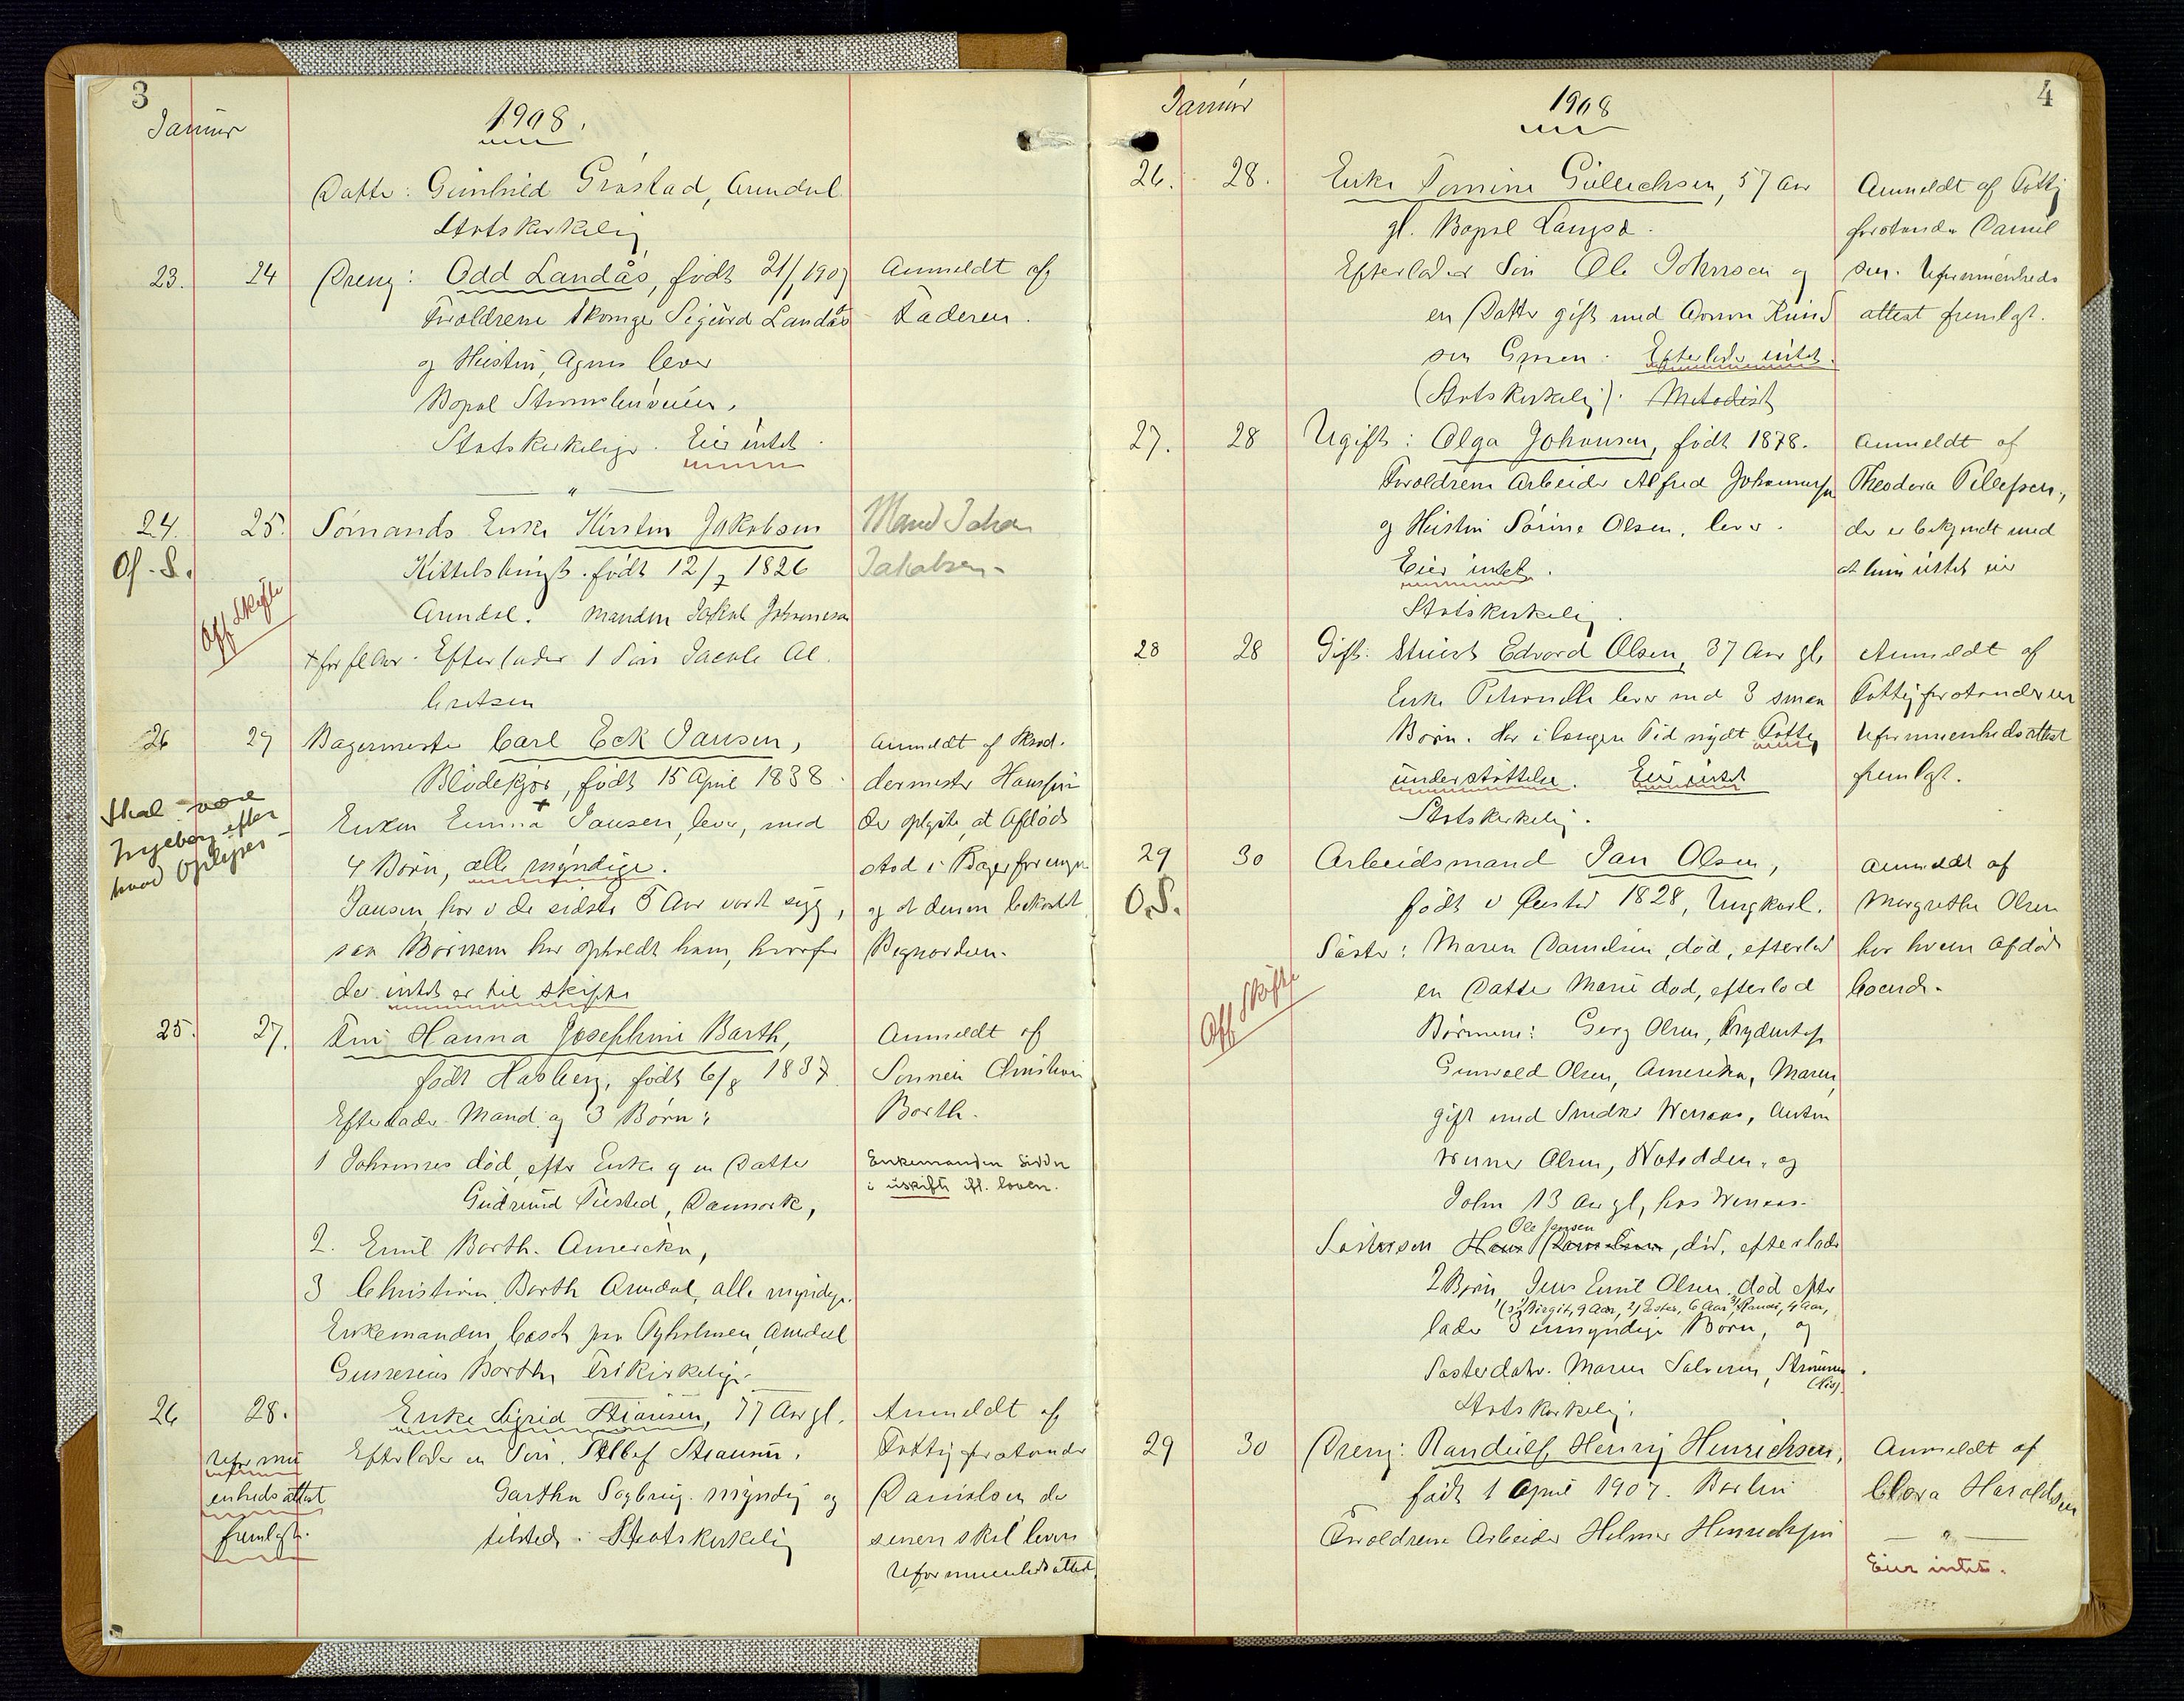 3
Januar
1908.
Datter: Gunhild Gråstad, Arendal
Statskirkelig
23. 24 Dreng: Odd Landås, født 21/1 1907 Anmeldt af
Forældrene Skomager Sigurd Landås Faderen.
og Hustru, Agnes lever
Bopæl
Statskirkelige. Eier intet.
24. 25. Sømands Enke Kirsten Jakobsen Mand Johan
Of. S. Kittelsbugt. født 12/7 1826 Jakobsen
Off Skifte
Arendal. Manden Jakob Johannesen
+ for fl Aar. Efterlader 1 Søn Jacob Al
bretsen
26 27 Bagermester Carl Eck Jansen, Anmeldt af Skræd-
Blødekjær, født 15 April 1838. dermester Hanssen
Skal være Enken Emma + Jansen, lever, med der oplyste, at Afdøde
Ingeborg efter 4 Børn, alle myndige. stod i Bagerforeningen
hvad Oplyses
Jansen har i de sidste 5 Aar vært syg, og at denne bekostet
saa Børnene har opholdt ham, hvorfor Begravelsen.
der intet er til Skifte
25. 27. Fru Hanna Josephine Barth, Anmeldt af
født Hasberg, født 6/8 1837. Sønnen Christian
Efterlader Mand og 3 Børn: Barth.
1 Johannes død, efter Enke og en Datter Enkemanden sidder
Gudrund Tisted, Danmark, i uskifte ifl. loven.
2. Emil Barth. Amerika,
3 Christian Barth Arendal, alle myndige.
Enkemanden bosat paa Tyholmen, Arendal
Barth, Frikirkelig.
26 28. Enke Sigrid Stiansen, 77 Aar gl. Anmeldt af
Uformu Efterlader en Søn. Stiansen. Fattigforstander
enheds attest Garthn myndig og Danielsen der
fremlagt. tilsted. Statskirkelig
Uformuenheds attest
4
Januar
1908
26. 28. Enke Tomine Gullichsen, 57 Aar Anmeldt af Fattig
gl. Bopæl Langsæ. forstander Daniel
Efterlader Søn Ole Johnsen og sen. Uformuenheds
en Datter gift med Knud attest fremlagt.
sen Efterlader intet.
(Statskirkelig). Metodist
27. 28 Ugift: Olga Johansen, født 1878. Anmeldt af
Forældrene Arbeider Alfred Johannesen Theodora Tellefsen,
og Hustru Sørine Olsen, lever. der er bekjendt med
Eier intet. at hun intet eier
Statskirkelig.
28 28 Gift: Stuert Edvard Olsen, 37 Aar gl. Anmeldt af
Enke Petronelle lever med 3 smaa Fattigforstanderen
Børn. Har i længere Tid nydt Fattig Uformuenhedsattest
understøttelse. Eier intet fremlagt.
Statskirkelig.
29 30 Arbeidsmand Jan Olsen, Anmeldt af
O.S. født i Øiestad 1828, Ungkarl. Margrethe Olsen
Søster: Maren Danielsen, død, efterlod hos hvem Afdøde
Off Skifte
en Datter Marie død, efterlod boende.
Børnene: Georg Olsen,
Gunvald Olsen, Amerika, Maren,
gift med Snedker Wennes, Anton
Werner Olsen, Notodden, og
John 13 Aar gl, hos Wennes.
Ole Jensen
Søstersøn Hans Danielsen, død, efterlader
2 Børn Jens Emil Olsen død efter
1) Birgit, 9 Aar, 2) Ester, 6 Aar 3) Randi, 4 Aar,
lader 3 umyndige Børn, og
Søsterdatr. Maren Salvesen, Strømmen.
Statskirkelig.
29 30 Dreng: Randulf Henry Henrichsen, Anmeldt af
født 1 April 1907. Barlin Clara Haroldsen
Forældrene Arbeider Helmer Henrichsen
Eier intet.